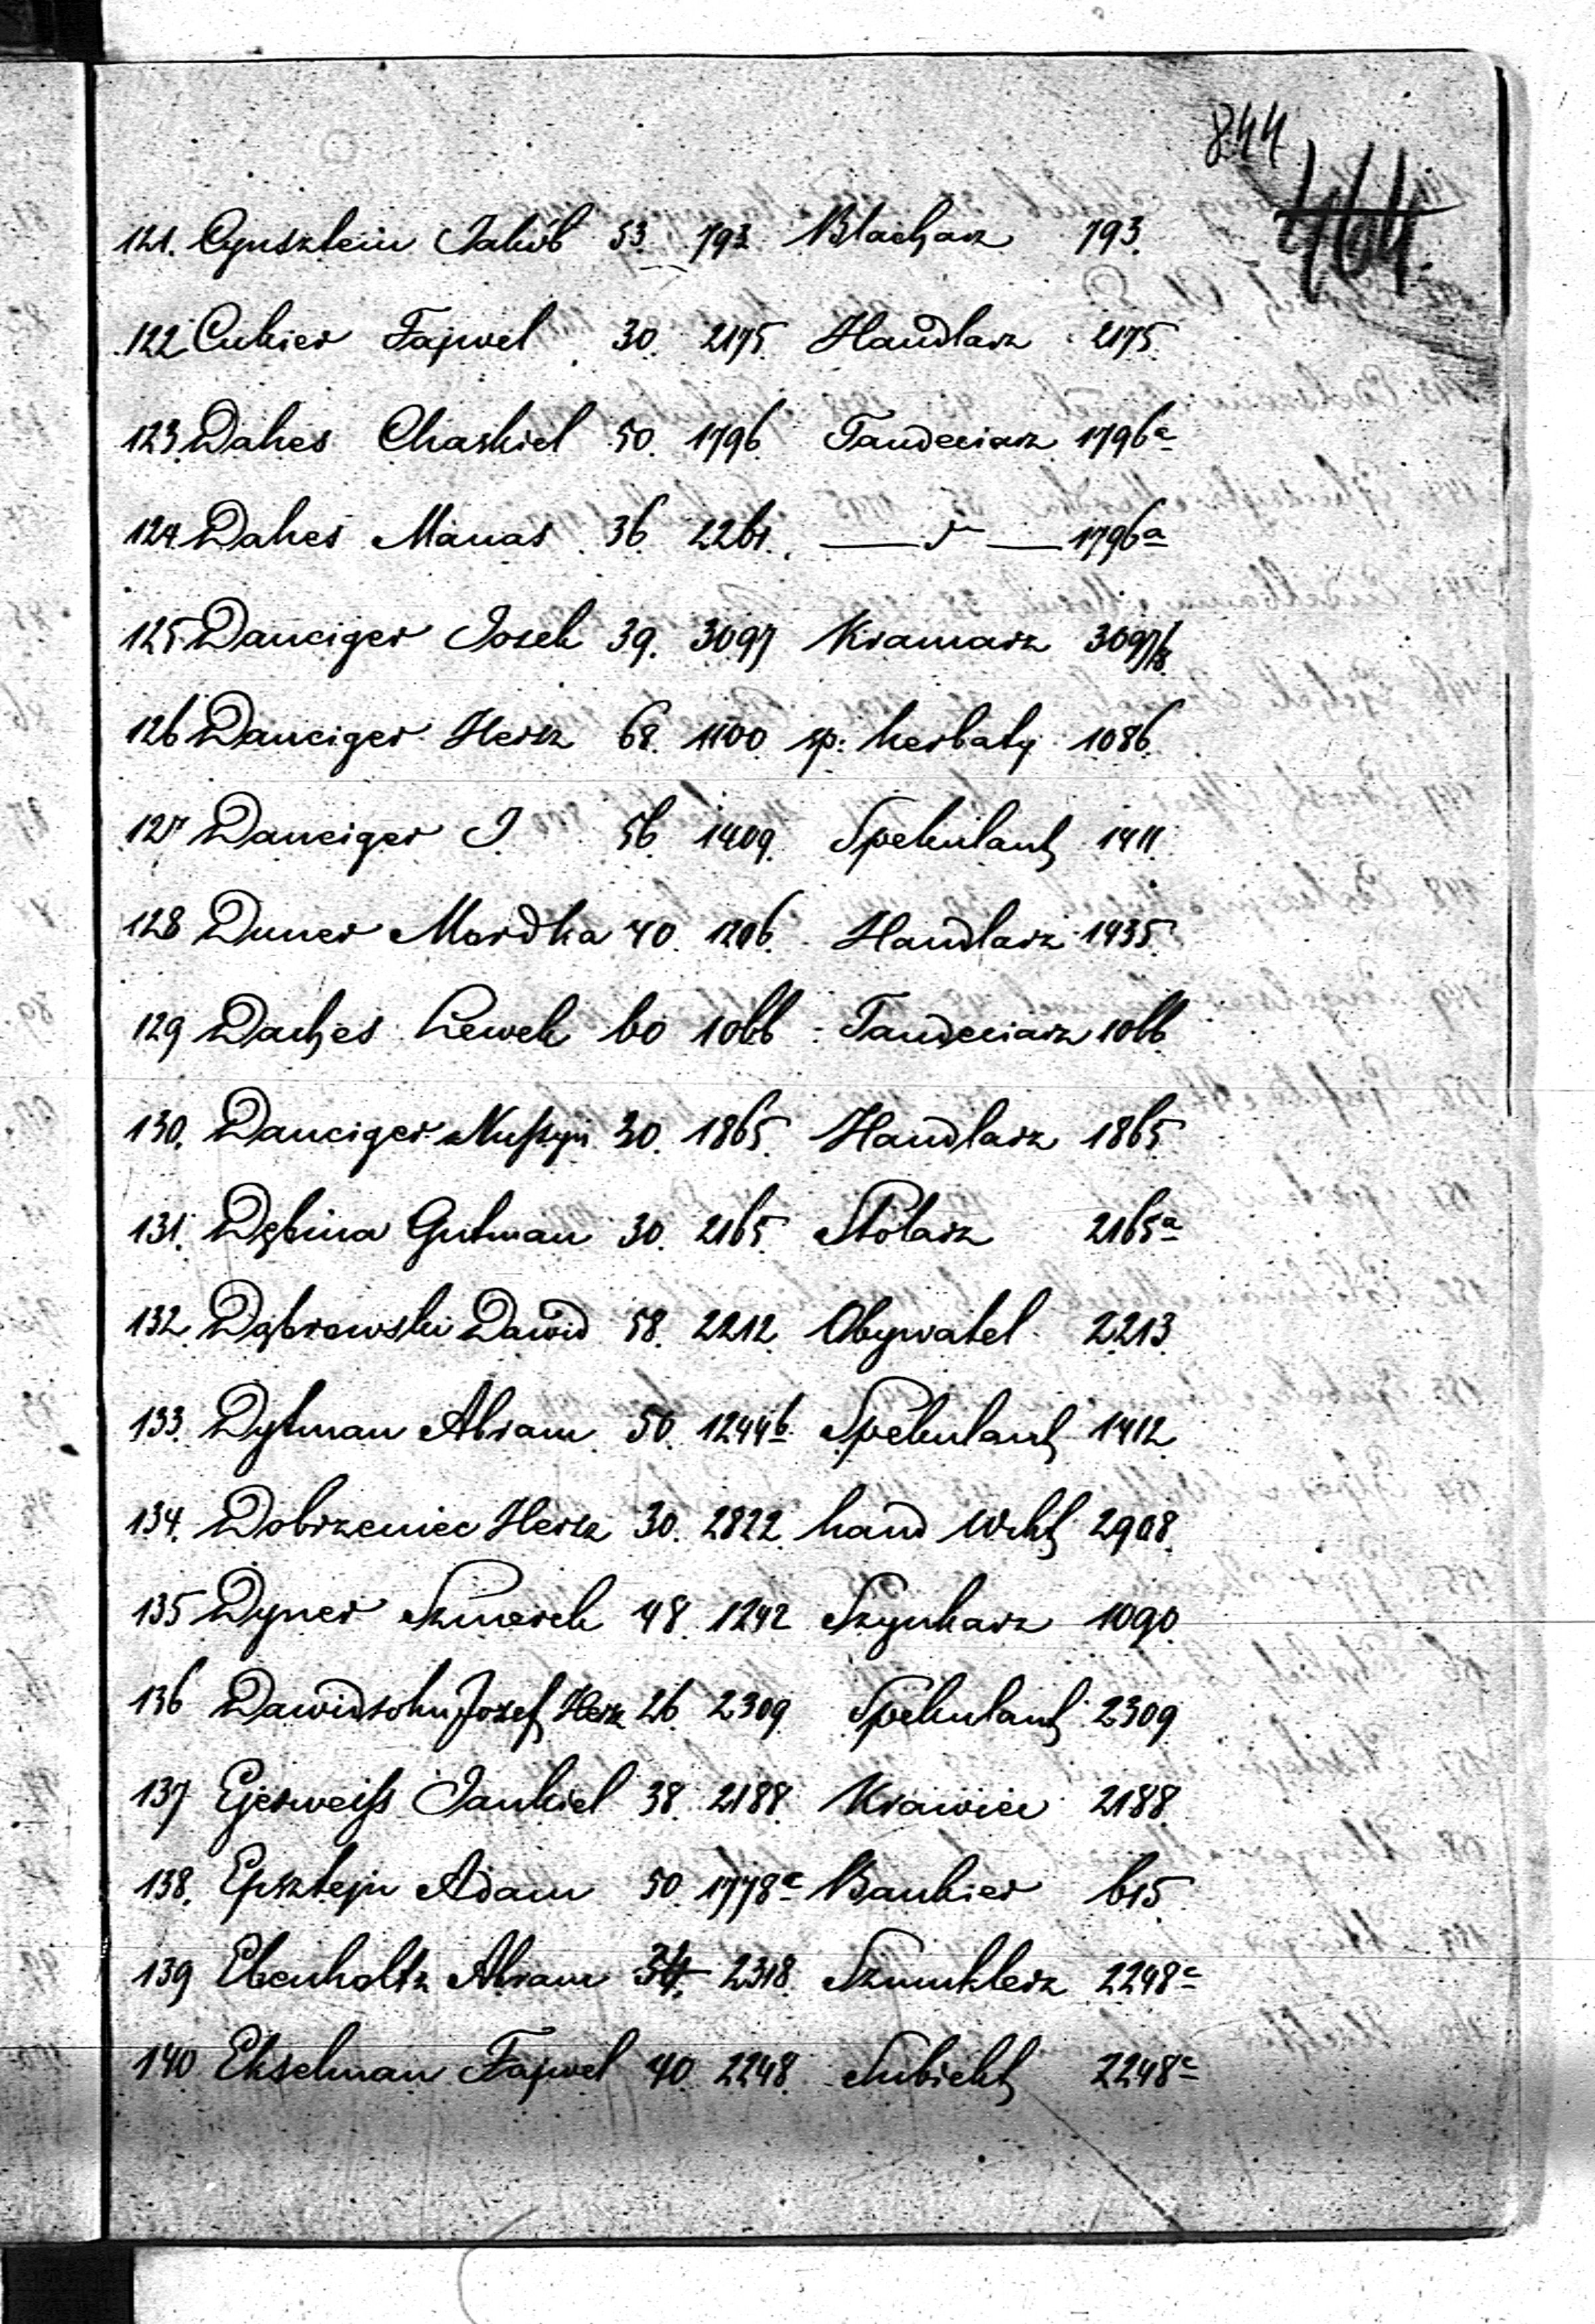 844
464.
121. Cynsztein Jakób 53. 793. Blacharz 793.
122 Cukier Fajwel 30. 2175. Handlarz 2175.
123. Dakes Chaskiel 50. 1796. Tandeciarz 1796c
124 Dakes Manas 36. 2261. —— d° —— 1796a
125 Danciger Josek 39. 3097 Kramarz 3097/8.
126 Danciger Hersz 68. 1100 sp: herbaty 1086.
127 Danciger I 56. 1409. Spekulant 1411.
128 Duner Mordka 40. 1206. Handlarz 1435.
129 Daches Lewek 60 1066 Tandeciarz 1066
130. Danciger Nuſsyn 30. 1865. Handlarz 1865.
131. Dębina Gutman 30. 2165. Stolarz 2165a
132. Dąbrowski Dawid 58. 2212. Obywatel 2213.
133. Dytman Abram 50. 1244b. Spekulant 1412.
134. Dobrzeniec Hersz 30. 2822. hand Wikt 2908.
135 Dyner Szmerek 48. 1242 Szynkarz 1090.
136 Dawidsohn Josef Hersz 26. 2309 Spekulant 2309
137 Ejerweiſs Jankiel 38. 2188. Krawiec 2188.
138. Epsztejn Adam 50. 1778c Bankier 615.
139 Ebenholtz Abram 34. 2318. Szmuklerz 2248c
140 Ekselman Fajwel 40. 2248. Subiekt 2248c